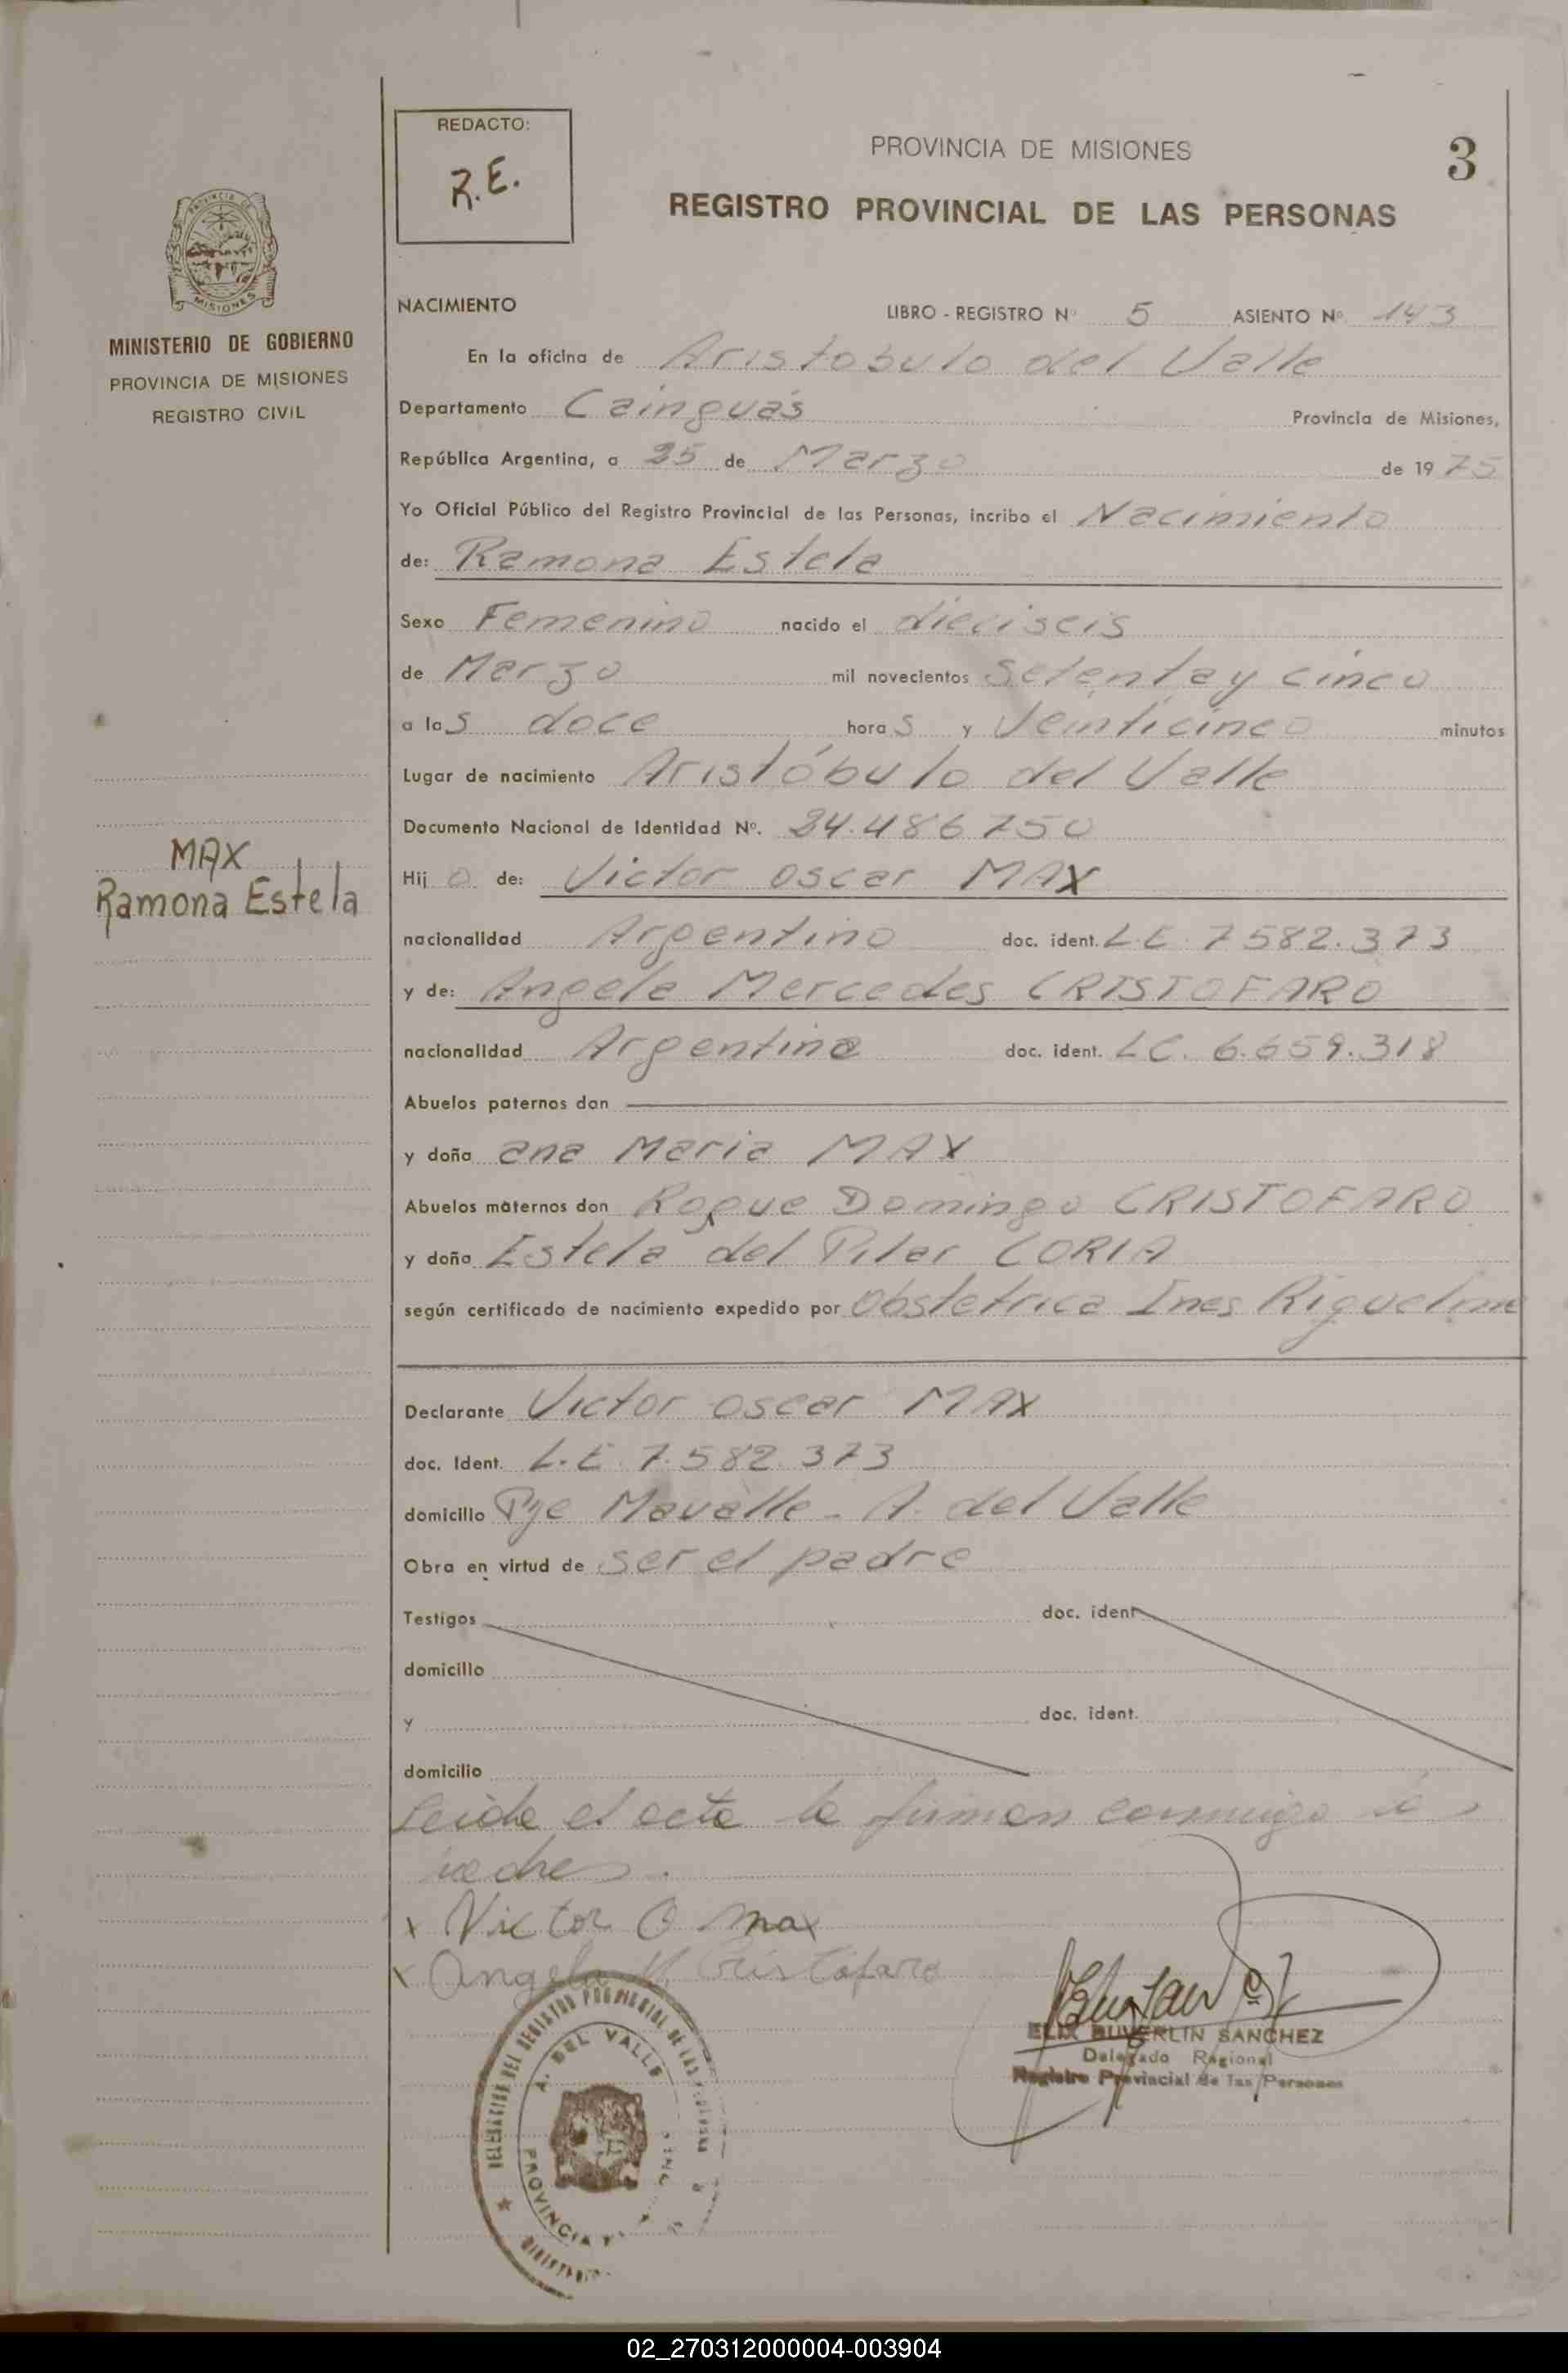 REDACTO:
R.E.
PROVINCIA DE MISIONES
3
REGISTRO PROVINCIAL DE LAS PERSONAS
PROVINCIA DE
MISIONES
MINISTERIO DE GOBIERNO
PROVINCIA DE MISIONES
REGISTRO CIVIL
MAX
Ramona Estela
NACIMIENTO LIBRO - REGISTRO Nº 5 ASIENTO Nº 143
En la oficina de Aristobulo del Valle
Departamento Cainguás Provincia de Misiones,
República Argentina, a 25 de Marzo de 1975
Yo Oficial Público del Registro Provincial de las Personas, incribo el Nacimiento
de: Ramona Estela
Sexo Femenino nacido el dieciseis
de Marzo mil novecientos setenta y cinco
a las doce horas y Veinticinco minutos
Lugar de nacimiento Aristóbulo del Valle
Documento Nacional de Identidad Nº. 24.486750
Hijo de: Victor oscar MAX
nacionalidad Argentino doc. ident. L.E. 7582.373
y de: Angela Mercedes CRISTOFARO
nacionalidad Argentina doc. ident. LC. 6.659.318
Abuelos paternos don
y doña ana Maria MAX
Abuelos maternos don Roque Domingo CRISTOFARO
y doña Estela del Pilar CORIA
según certificado de nacimiento expedido por Obstetrica Ines Riquelme
Declarante Victor oscar MAX
doc. Ident. L.E 7.582.373
domicilio Pje Mavalle - A. del Valle
Obra en virtud de ser el padre
Testigos doc. ident
domicilio
y doc. ident.
domicilio
Leida el acta la firman conmigo los
padres.
x Victor O max
x Angela M. Cristofaro
ELIX BUVERLIN SANCHEZ
Delegado Regional
Registro Provincial de las Personas
DELEGACION DEL REGISTRO PROVINCIAL DE LAS PERSONAS
A. DEL VALLE
PROVINCIA
02_270312000004-003904